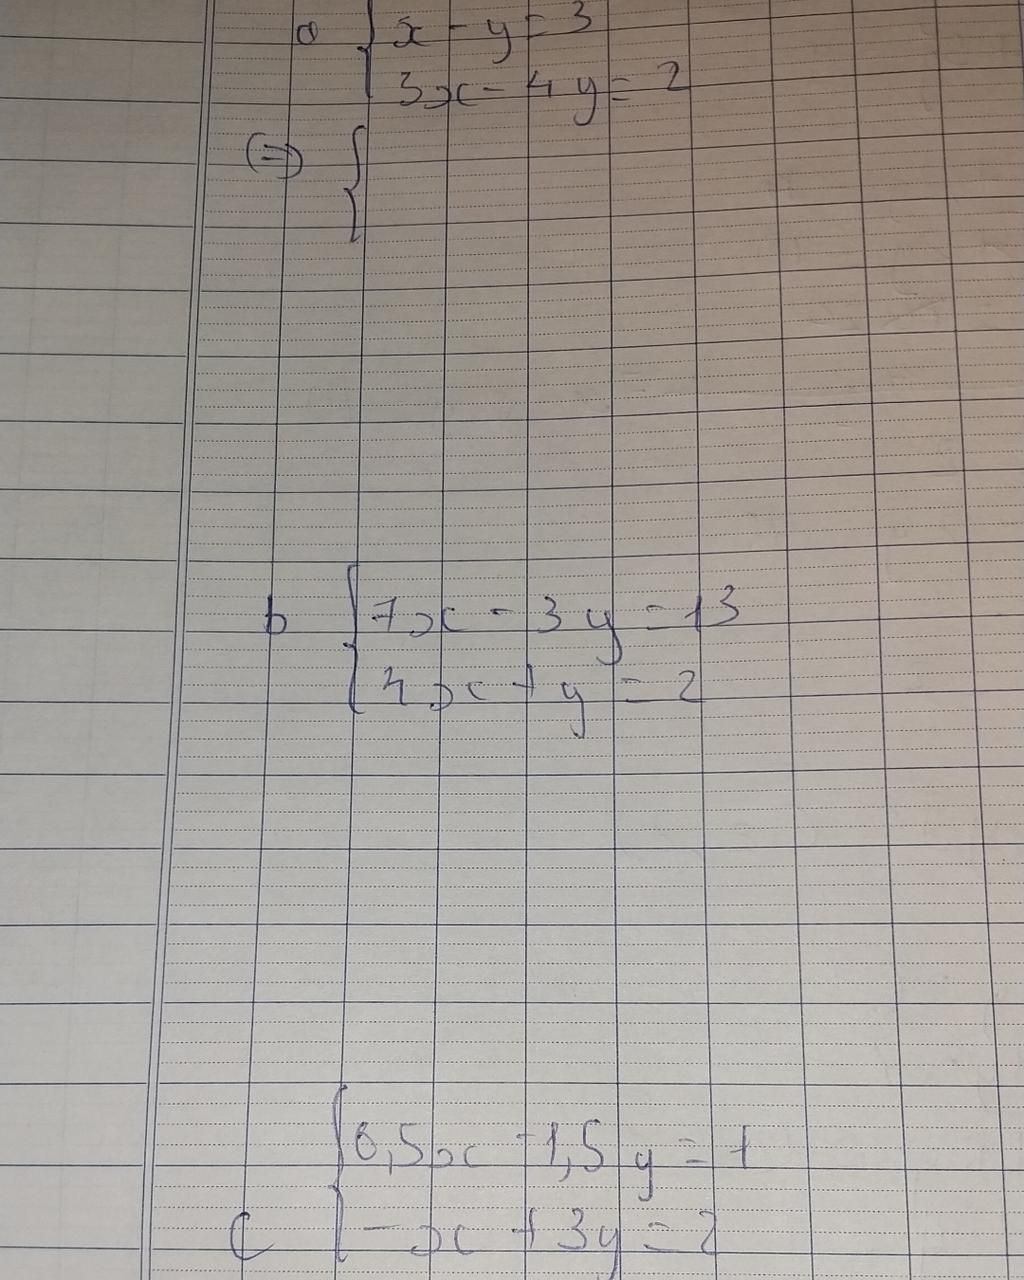 a { x - y = 3
3x - 4y = 2
(=) {
b { 7x - 3y = 13
4x + y = 2
{ 0,5x - 1,5y = 1
c - x + 3y = 2